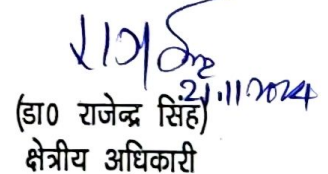 21.11.2024
(डा0 राजेन्द्र सिंह)
क्षेत्रीय अधिकारी